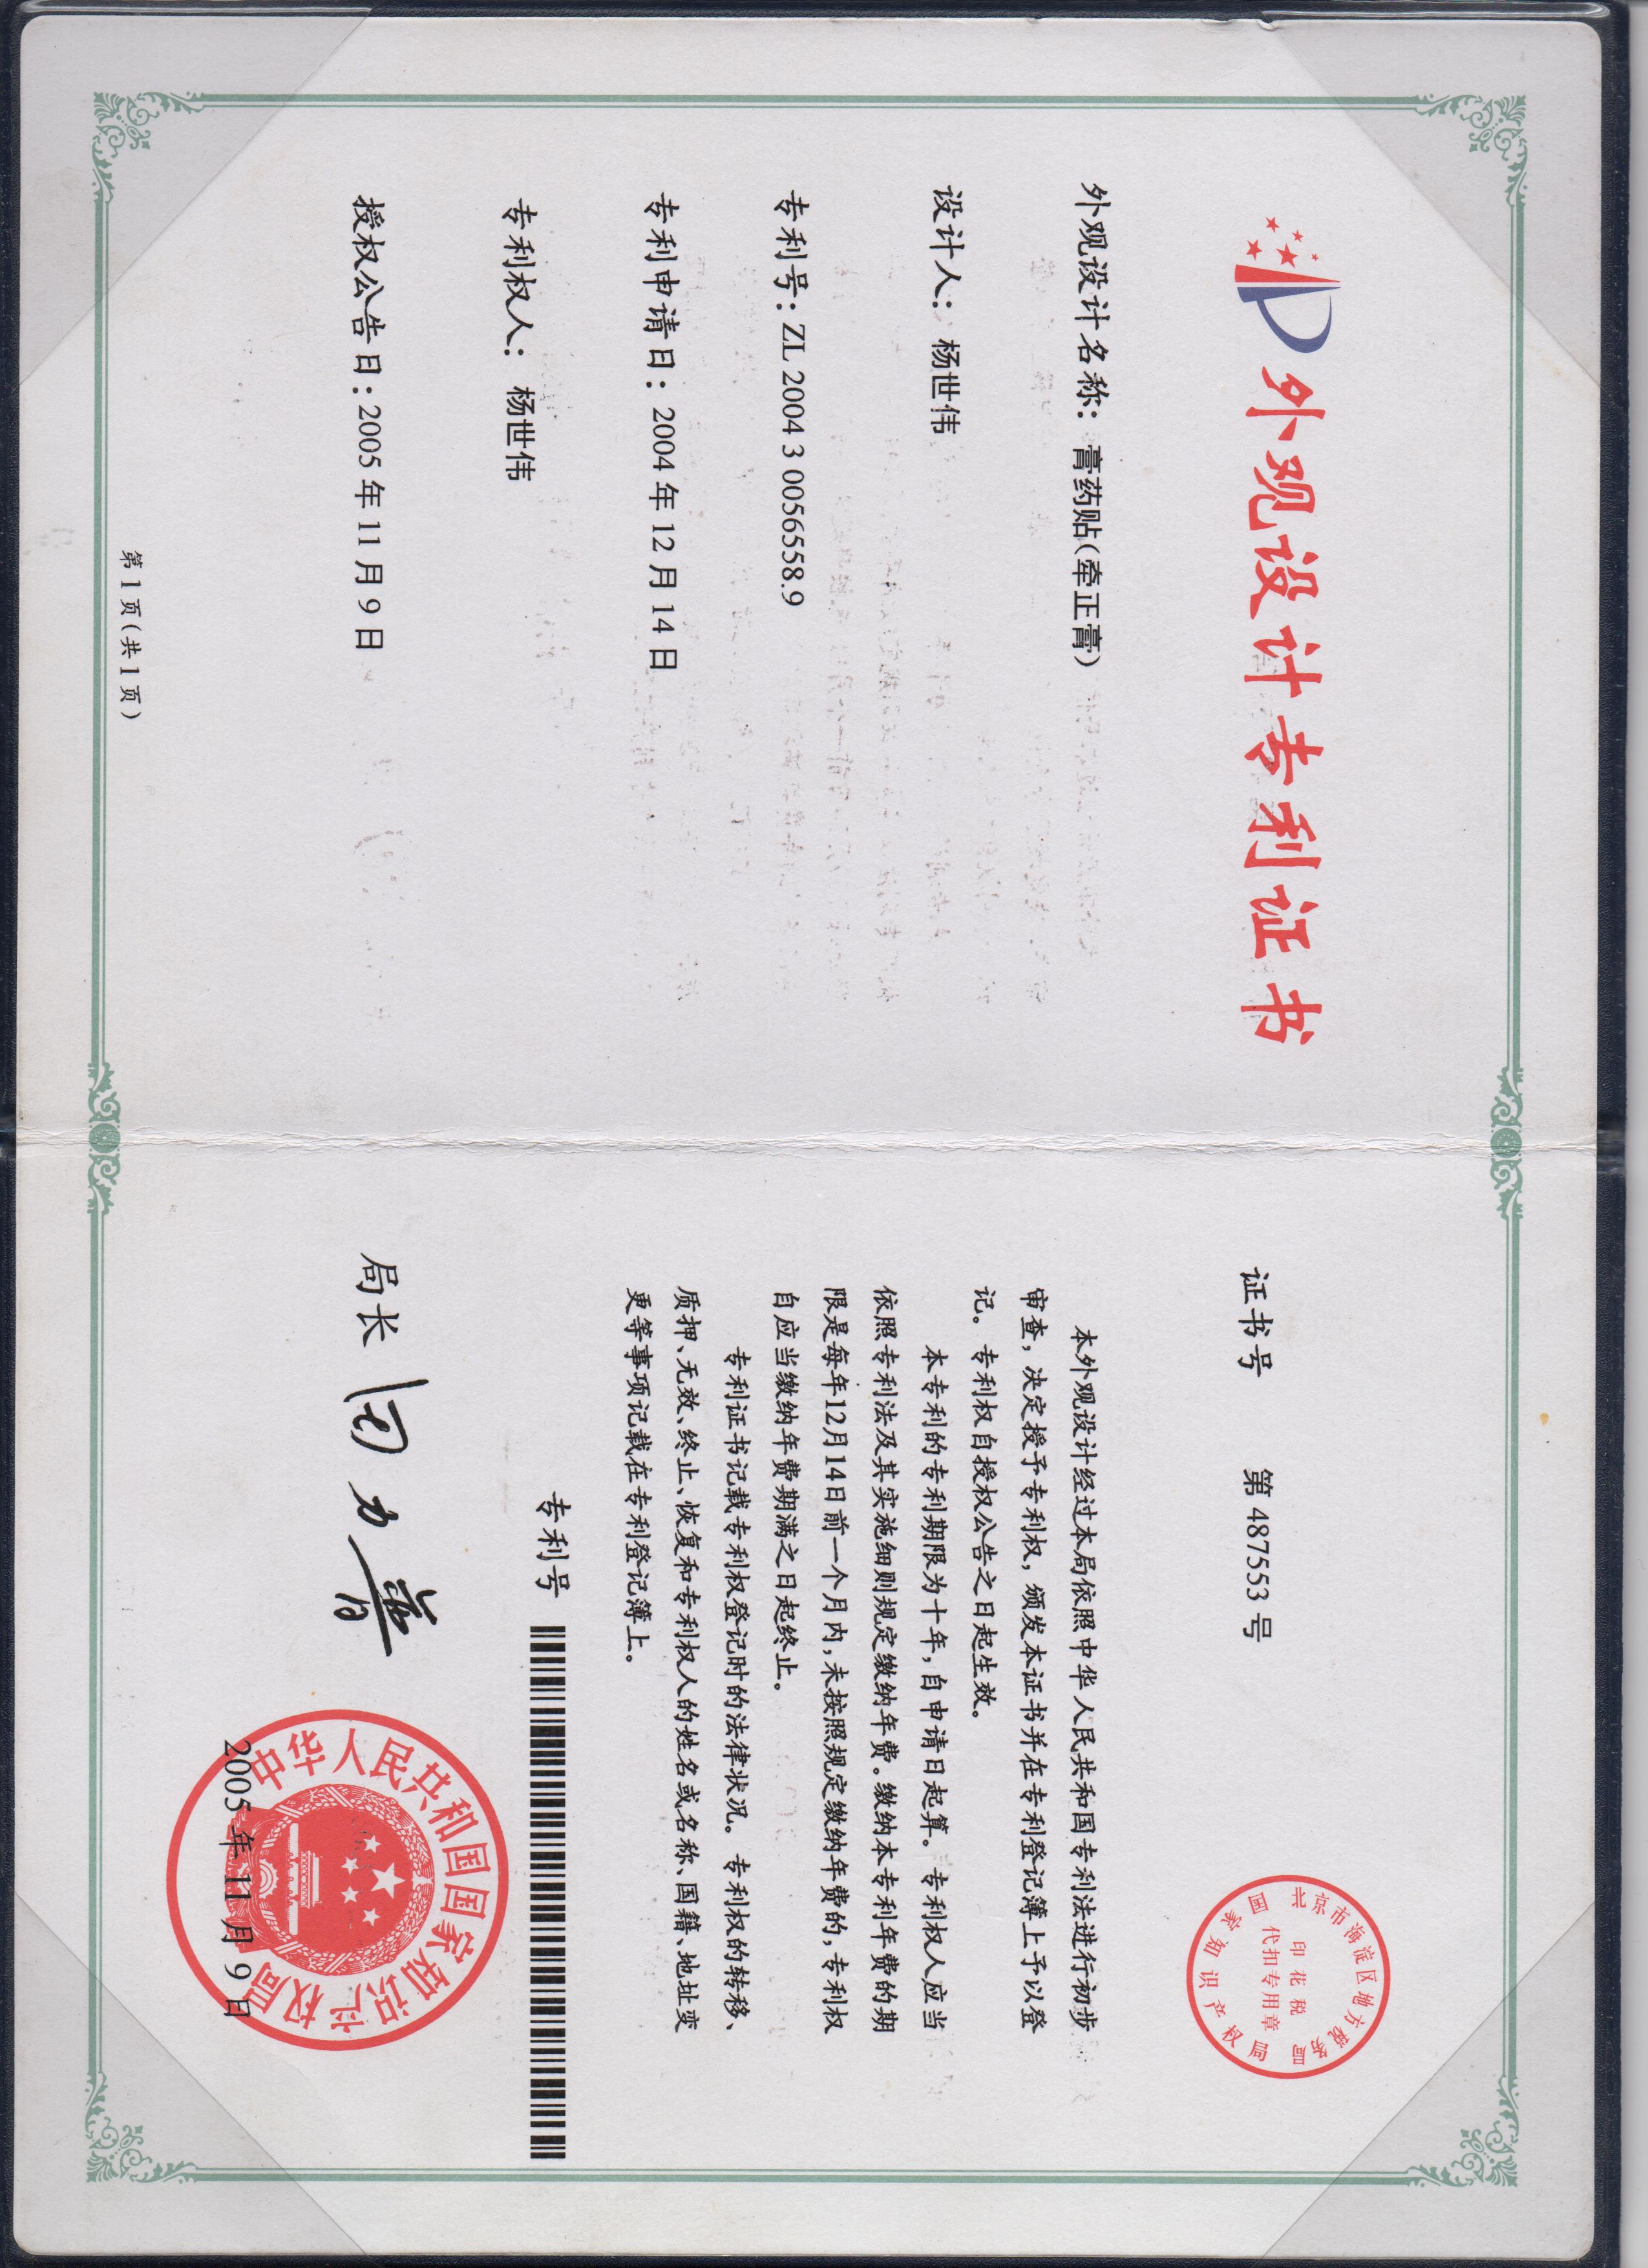 外观设计专利证书
外观设计名称：膏药贴(牵正膏)
设计人：杨世伟
专利号：ZL 2004 3 0056558.9
专利申请日：2004年12月14日
专利权人：杨世伟
授权公告日：2005年11月9日
第1页(共1页)
证书号 第487553号
北京市海淀区地方税务局
印花税
代扣专用章
国家知识产权局
本外观设计经过本局依照中华人民共和国专利法进行初步
审查，决定授予专利权，颁发本证书并在专利登记簿上予以登
记。专利权自授权公告之日起生效。
本专利的专利期限为十年，自申请日起算。专利权人应当
依照专利法及其实施细则规定缴纳年费。缴纳本专利年费的期
限是每年12月14日前一个月内，未按照规定缴纳年费的，专利权
自应当缴纳年费期满之日起终止。
专利证书记载专利权登记时的法律状况。专利权的转移、
质押、无效、终止、恢复和专利权人的姓名或名称、国籍、地址变
更等事项记载在专利登记簿上。
专利号
局长 田力普
中华人民共和国国家知识产权局
2005年11月9日